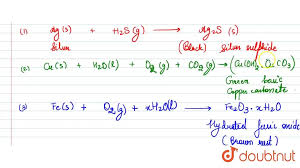 (1) Ag(s) + H₂S(g) ⟶ Ag₂S (s)
Silver (Black) Silver sulphide
(2) Cu(s) + H₂O(l) + O₂(g) + CO₂(g) ⟶ (Cu(OH)₂. CuCO₃)
Green basic
Copper carbonate
(3) Fe(s) + O₂(g) + xH₂O(l) ⟶ Fe₂O₃. xH₂O
Hydrated ferric oxide
(Brown rust)
doubtnut